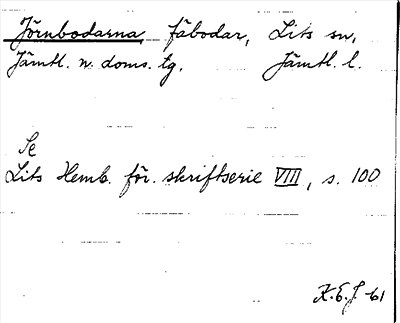 Jörnbodarna, fäbodar, Lits sn,
Jämtl. n. doms. tg. Jämtl. l.
Se
Lits Hemb. för. skriftserie VIII, s. 100
K.E.J. 61